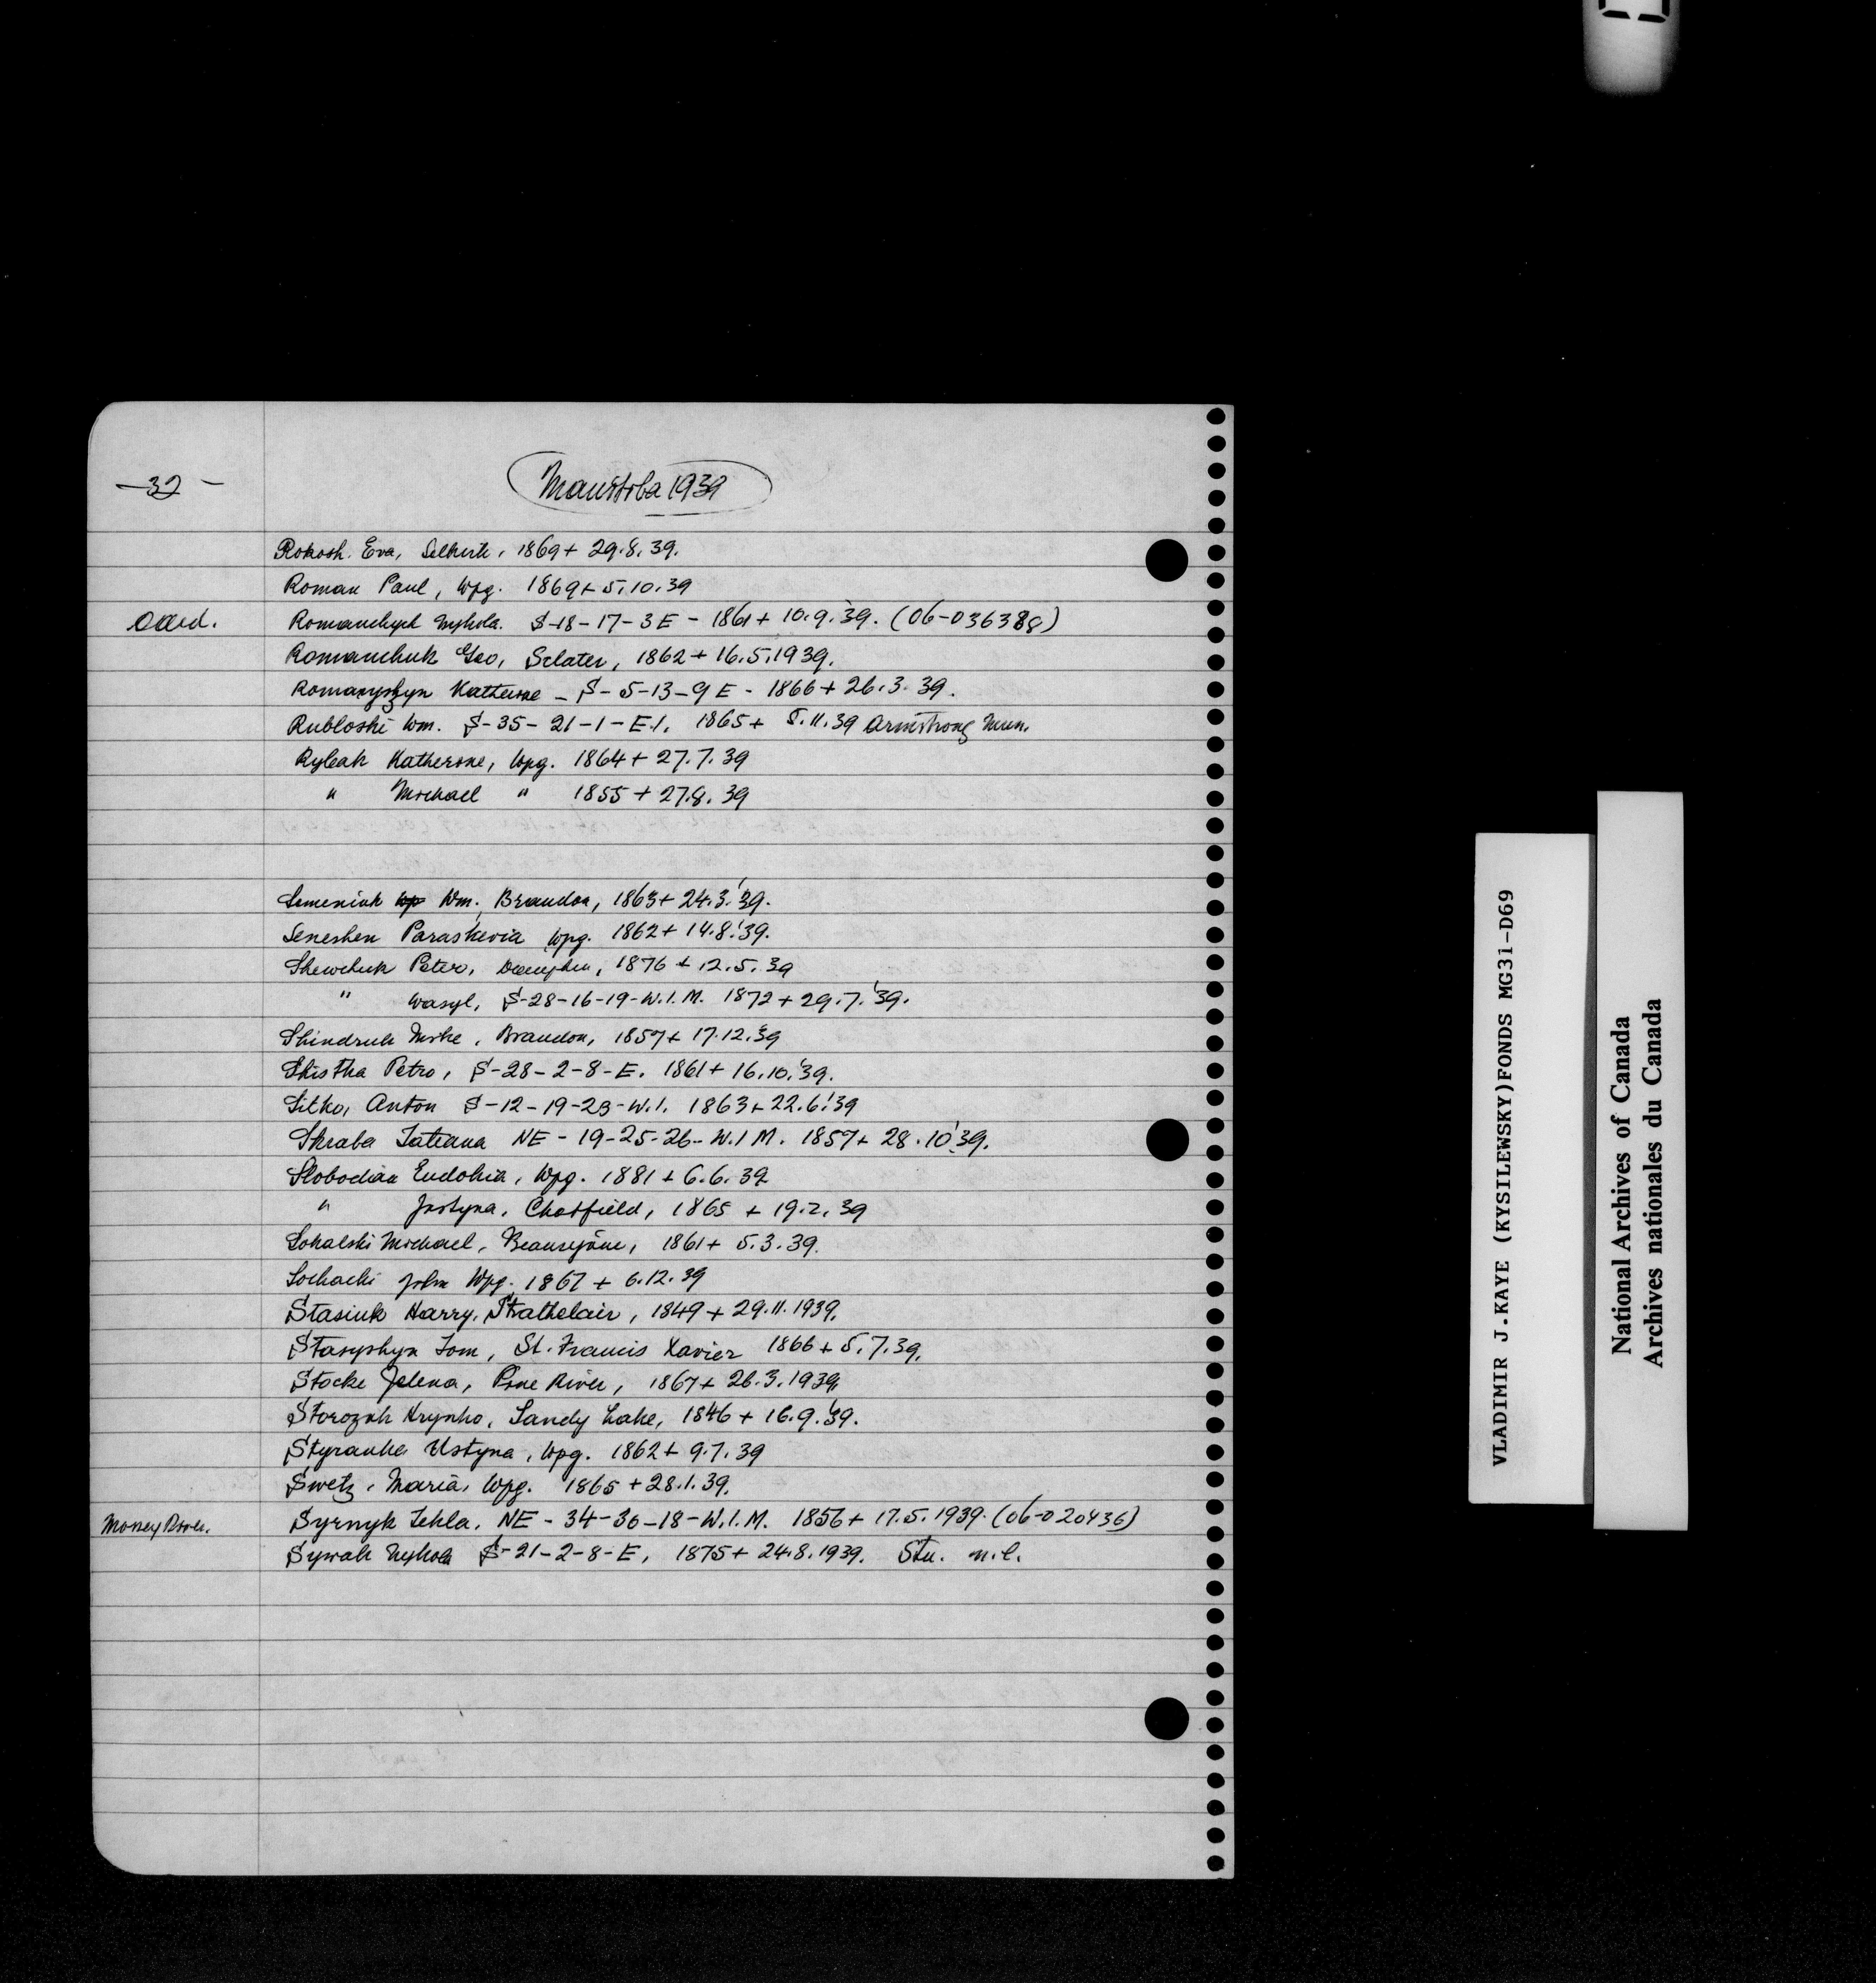 -32-
Manitoba 1939
Rokosh. Eva, Selkirk, 1869+ 29.8.39.
Roman Paul, Wpg. 1869+ 5.10.39
Romanchych Mykola. S-18-17-3E - 1861+ 10.9.'39. (06-036388)
Romanchuk Geo, Sclater, 1862+ 16.5.1939.
Romanyshyn Katherine - S-5-13-9E - 1866+ 26.3.39.
Rubloski Wm. S-35-21-1-E.1. 1865+ 5.11.39 Armstrong Mun.
Ryleak Katherine, Wpg. 1864+ 27.7.39
" Michael " 1855+ 27.8.39
Semeniuk Wm. Brandon, 1863+ 24.3.'39.
Seneshen Paraskevia Wpg. 1862+ 14.8.'39.
Shewchuk Peter, Dauphin, 1876+ 12.5.39
" Wasyl, S-28-16-19-W.1.M. 1872+ 29.7.'39.
Shindruk Mike, Brandon, 1857+ 17.12.'39
Shistka Petro, S-28-2-8-E. 1861+ 16.10.'39.
Sitko, Anton S-12-19-23-W.1. 1863+ 22.6.'39
Skraba Tatiana NE-19-25-26-W.1M. 1857+ 28.10'39.
Slobodian Eudokia, Wpg. 1881+ 6.6.39
" Justyna, Chatfield, 1865 + 19.2.39
Sokalski Michael, Beausejour, 1861+ 5.3.39.
Sochacki John Wpg. 1867+ 6.12.39
Stasiuk Harry, Strathclair, 1849+ 29.11.1939.
Stasyshyn Tom, St. Francis Xavier 1866+ 5.7.39.
Stocke Jelena, Pine River, 1867+ 26.3.1939
Storozuk Hrynko, Sandy Lake, 1846+ 16.9.'39.
Styranka Ustyna, Wpg. 1862+ 9.7.39
Swetz, Maria, Wpg. 1865+ 28.1.39.
Syrnyk Tekla, NE-34-30-18-W.1.M. 1856+ 17.5.1939. (06-020436)
Sywak Mykola S-21-2-8-E, 1875+ 24.8.1939. Stu. m.l.
VLADIMIR J.KAYE (KYSILEWSKY)FONDS MG31-D69
National Archives of Canada
Archives nationales du Canada